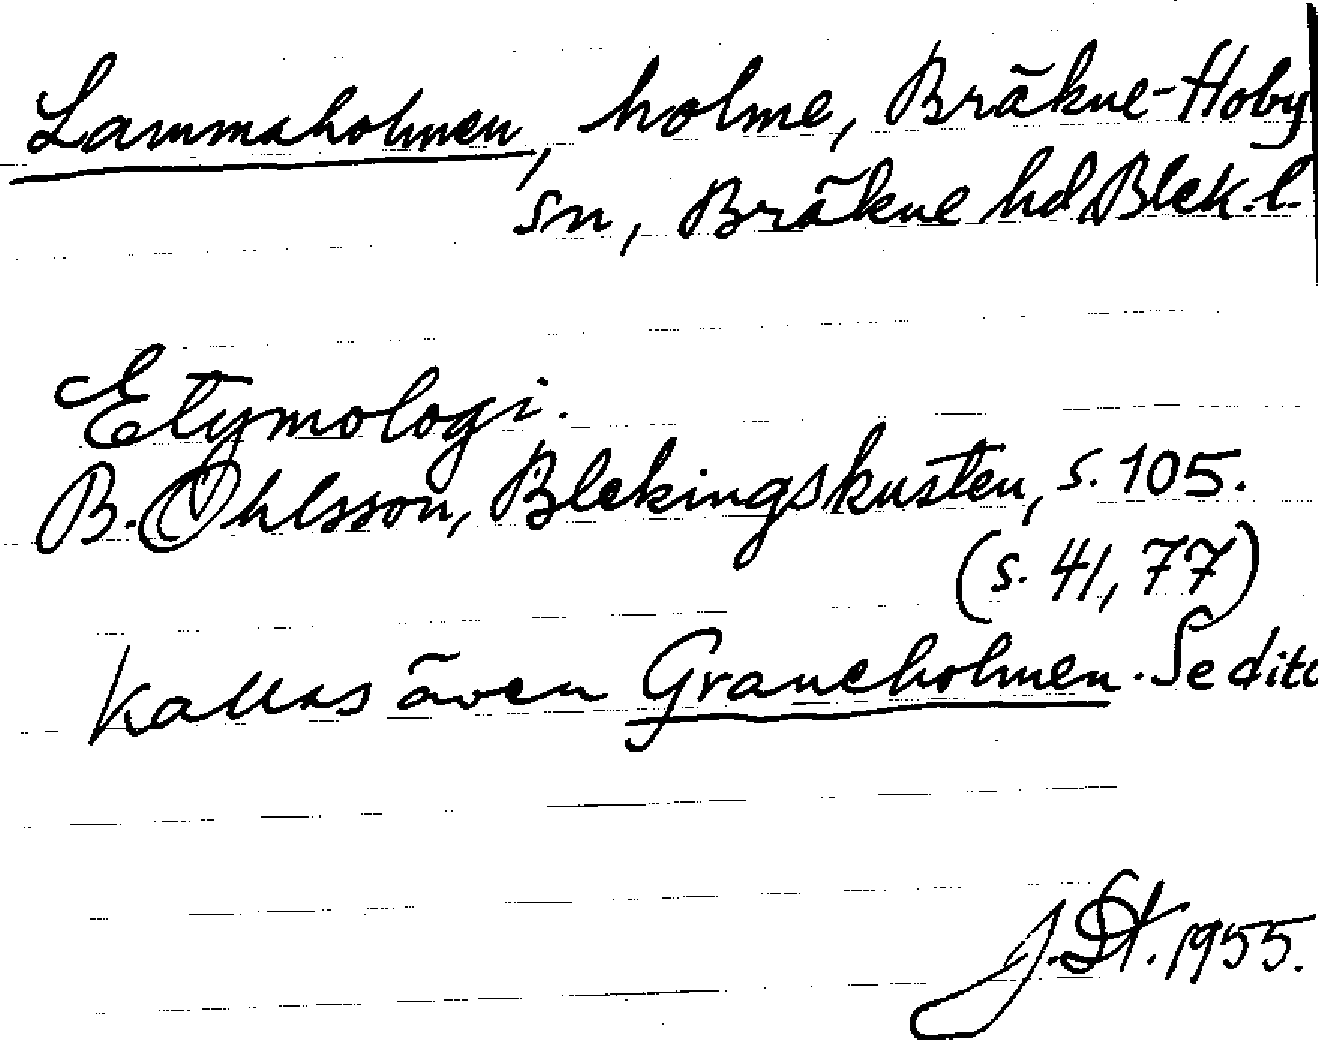 Lammaholmen, holme, Bräkne-Hoby
sn, Bräkne hd Blek. l.
Etymologi.
B. Ohlsson, Blekingskusten, s. 105.
(s. 41, 77)
Kallas även Graneholmen. Se dito
J. St. 1955.